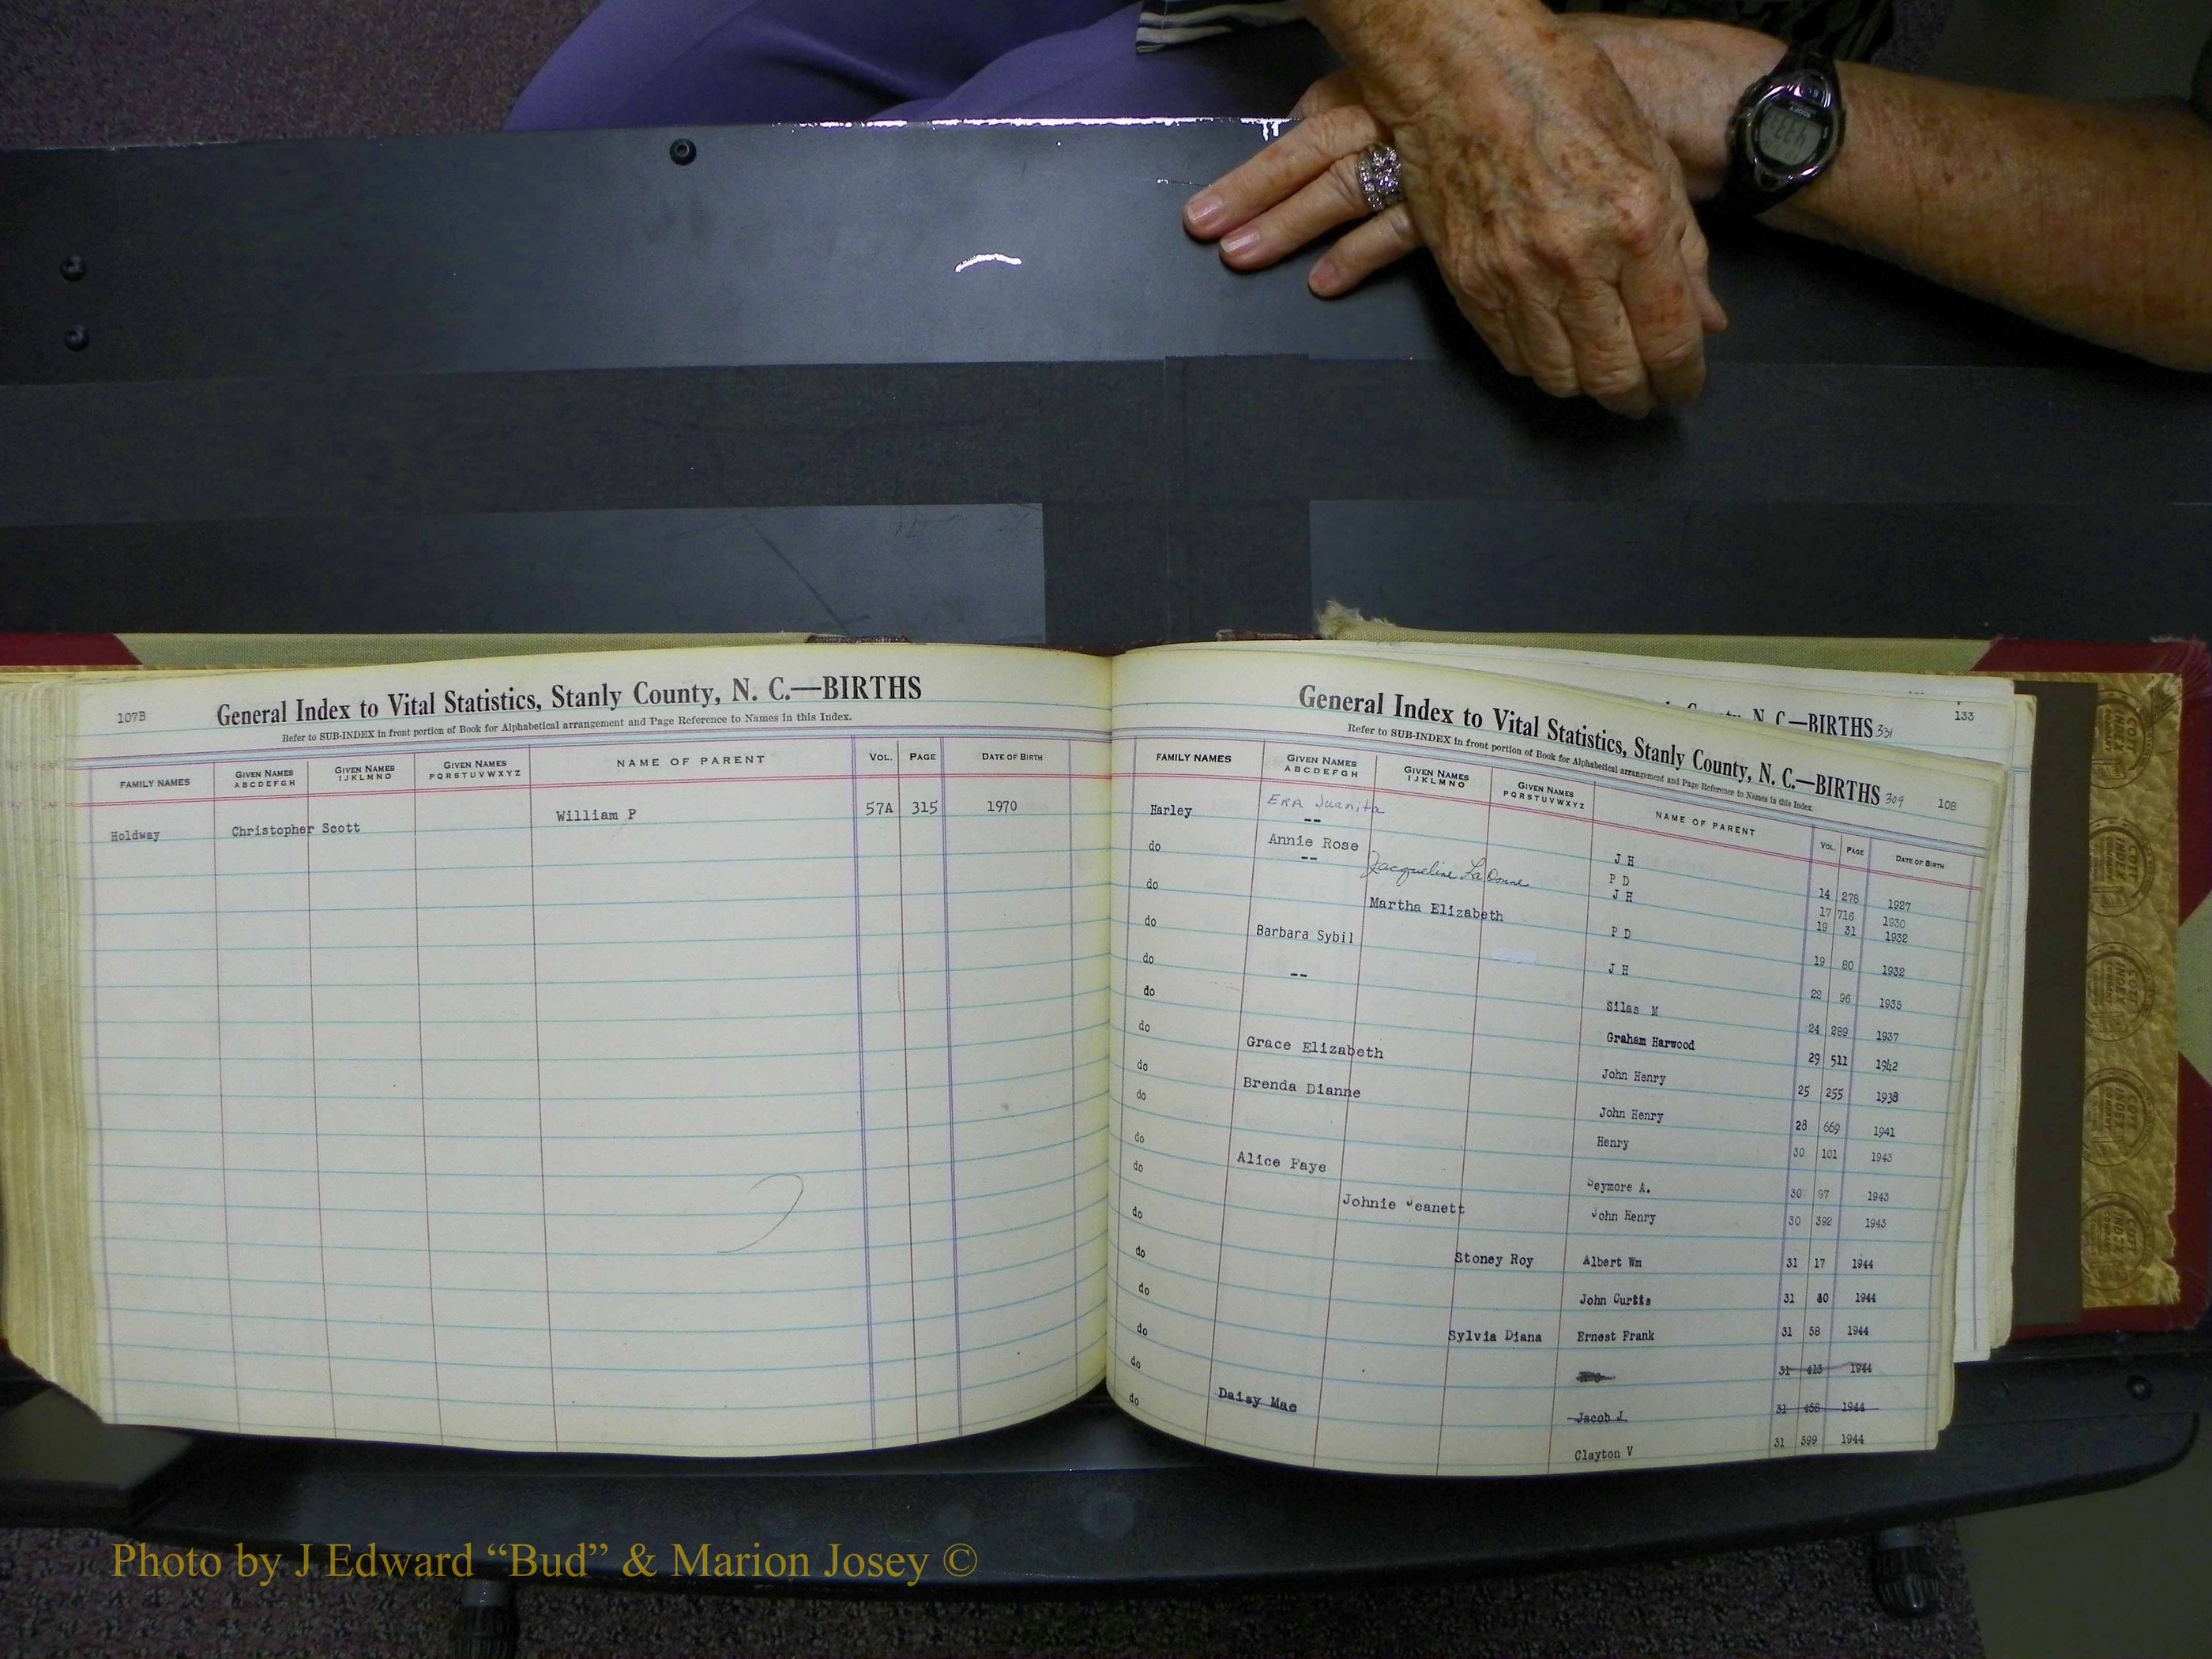 107B
General Index to Vital Statistics, Stanly County, N. C.—BIRTHS
Refer to SUB-INDEX in front portion of Book for Alphabetical arrangement and Page Reference to Names in this Index.
FAMILY NAMES GIVEN NAMES ABCDEFGH GIVEN NAMES IJKLMNO GIVEN NAMES PQRSTUVWXYZ NAME OF PARENT VOL. PAGE DATE OF BIRTH
Holdway Christopher Scott William P 57A 315 1970
133
N. C.—BIRTHS 331
General Index to Vital Statistics, Stanly County, N. C.—BIRTHS 309 108
Refer to SUB-INDEX in front portion of Book for Alphabetical arrangement and Page Reference to Names in this Index.
FAMILY NAMES GIVEN NAMES ABCDEFGH GIVEN NAMES IJKLMNO GIVEN NAMES PQRSTUVWXYZ NAME OF PARENT VOL. PAGE DATE OF BIRTH
Harley Era Juanita -- J H 14 278 1927
do Annie Rose P D 17 716 1930
-- Jacqueline La Donne J H 19 31 1932
do Martha Elizabeth P D 19 80 1932
do Barbara Sybil J H 22 96 1935
do -- Silas M 24 289 1937
do Graham Harwood 29 511 1942
do Grace Elizabeth John Henry 25 255 1938
do Brenda Dianne John Henry 28 669 1941
do Henry 30 101 1943
do Alice Faye Seymore A. 30 97 1943
do Johnie Jeanett John Henry 30 392 1943
do Stoney Roy Albert Wm 31 17 1944
do John Curtis 31 80 1944
do Sylvia Diana Ernest Frank 31 58 1944
do 31 413 1944
do Jacob J. 31 458 1944
do Daisy Mae Clayton V 31 599 1944
Photo by J Edward “Bud” & Marion Josey ©